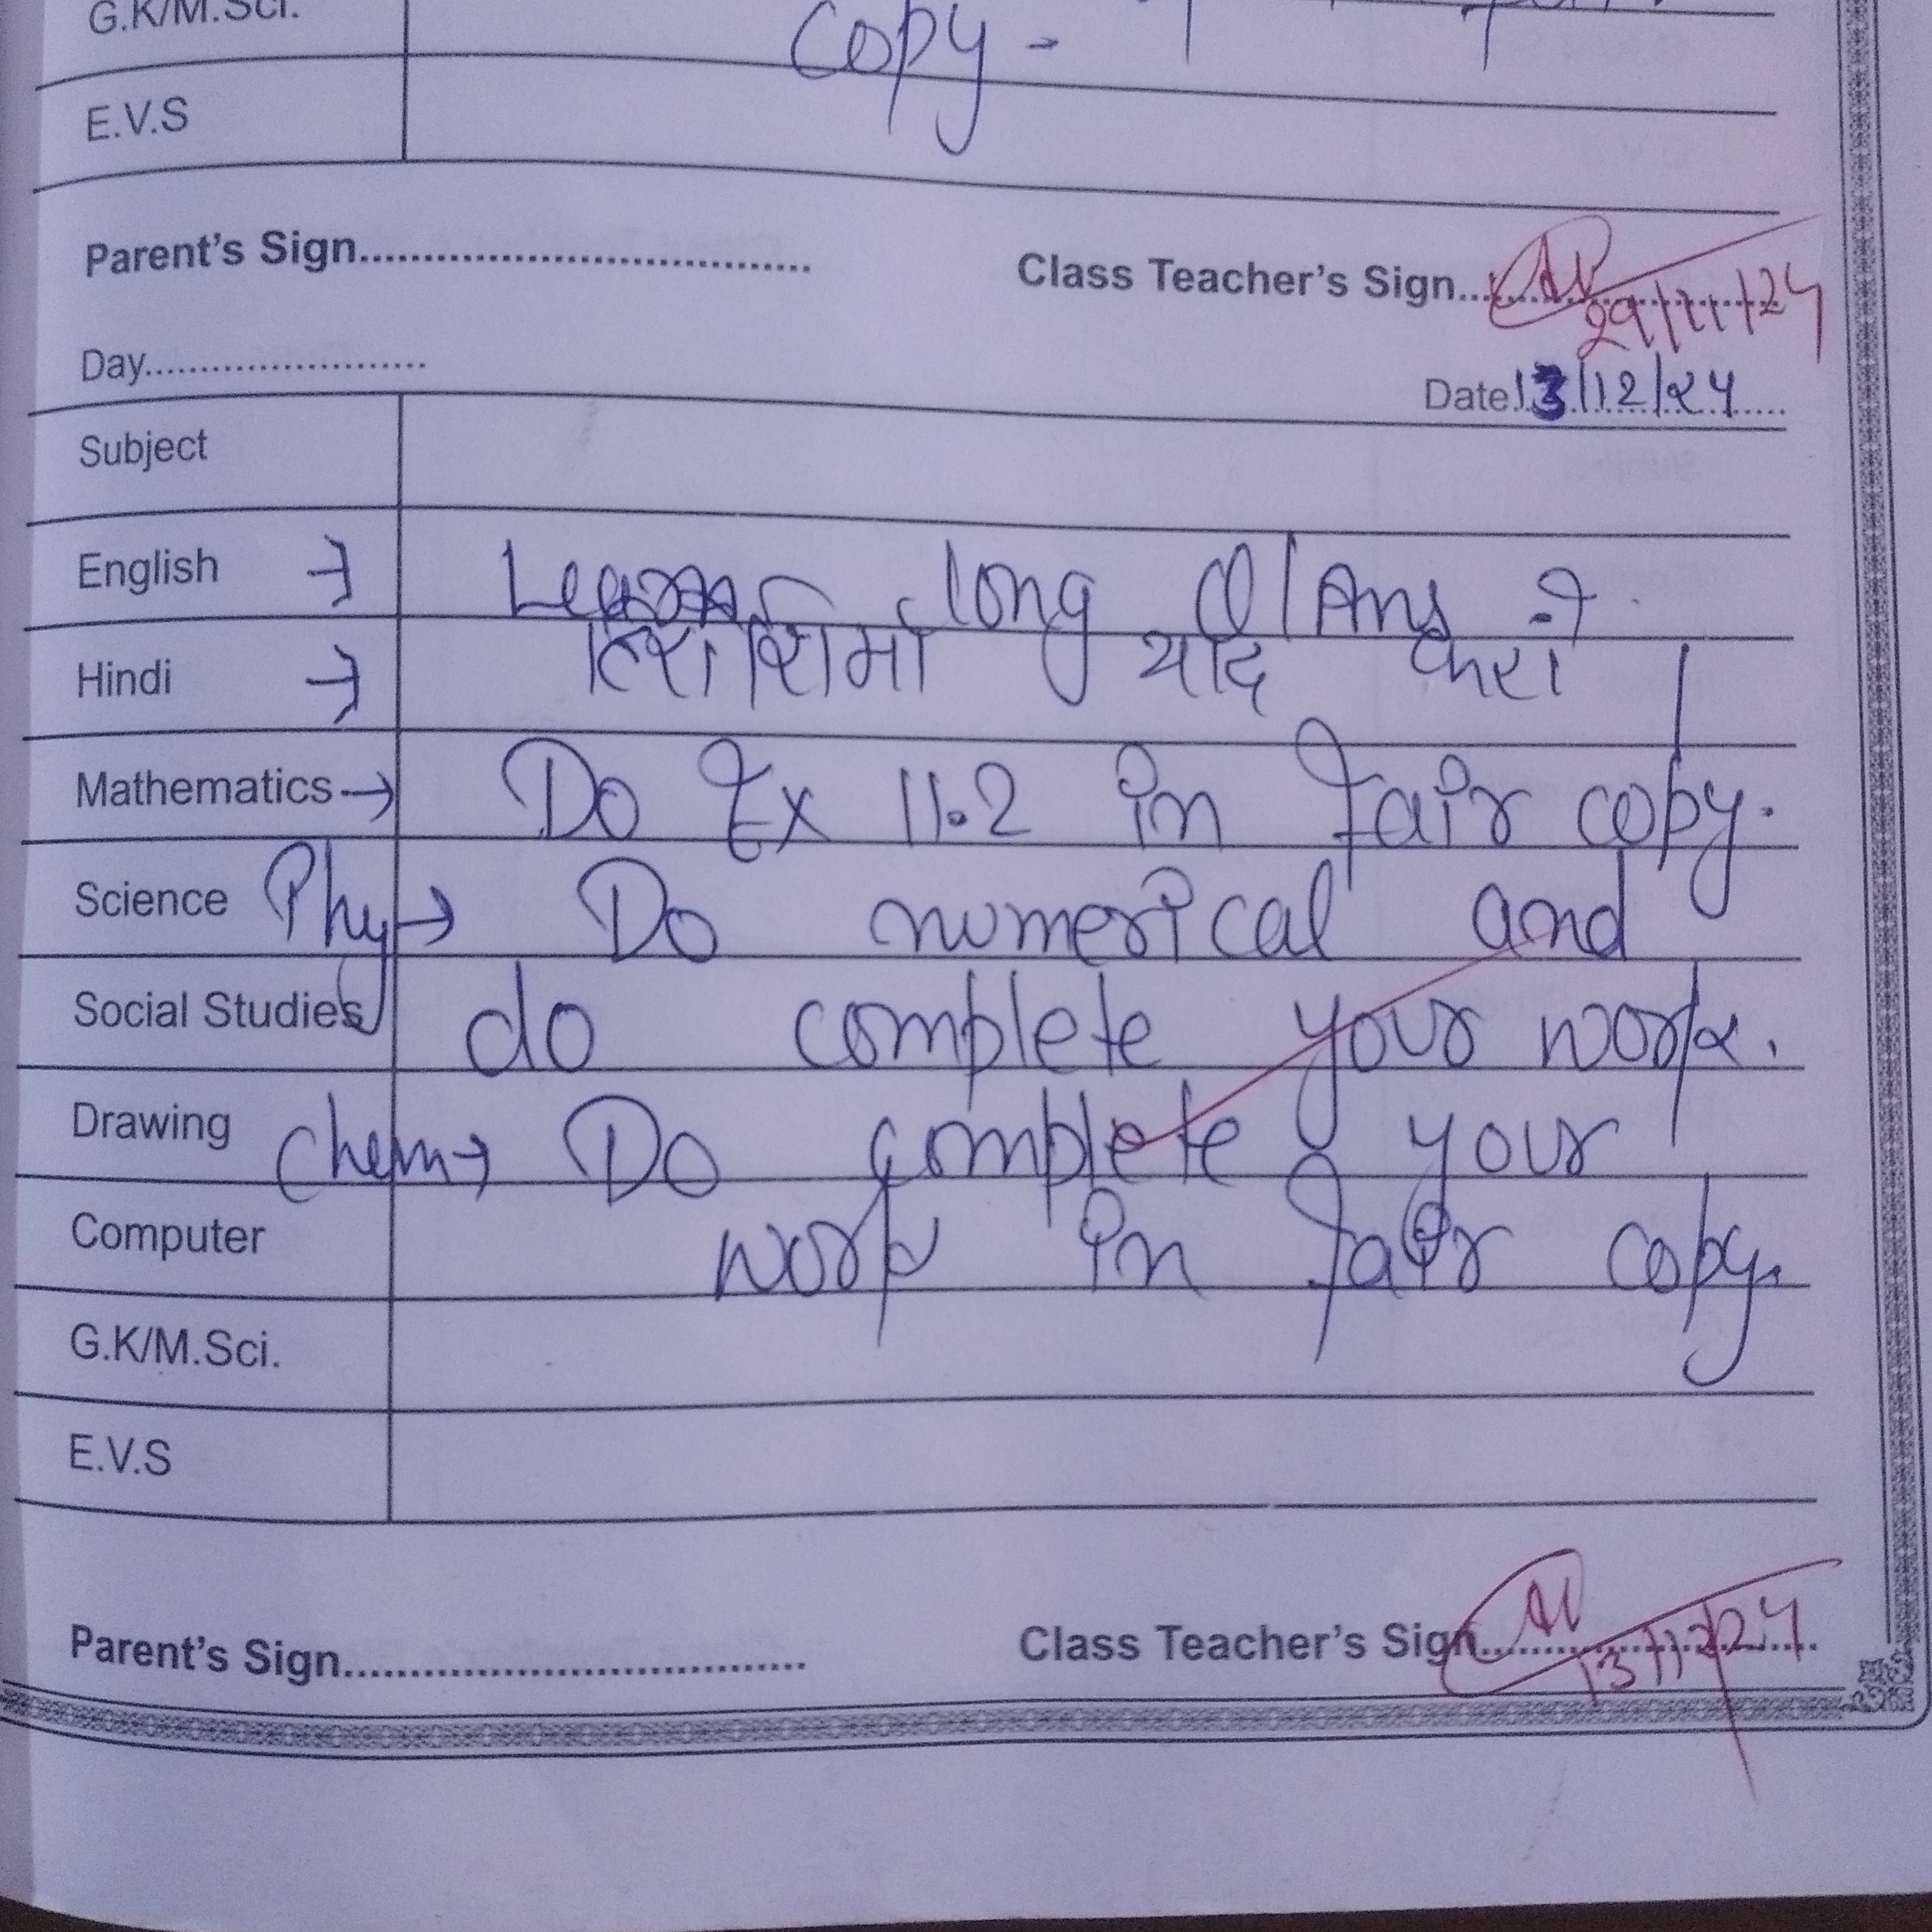 G.K/M.Sci.
copy -
E.V.S
Parent's Sign................................
Class Teacher's Sign.....
29/11/24
Day........................
Date 13/12/24
Subject
English → Learn long Q/Ans :-
Hindi → हिरोशिमा याद करो |
Mathematics → Do Ex 11.2 in fair copy.
Science Phy → Do numerical and
Social Studies do complete your work.
Drawing Chem → Do complete your
Computer work in fair copy.
G.K/M.Sci.
E.V.S
Parent's Sign................................
Class Teacher's Sign.....
13/12/24